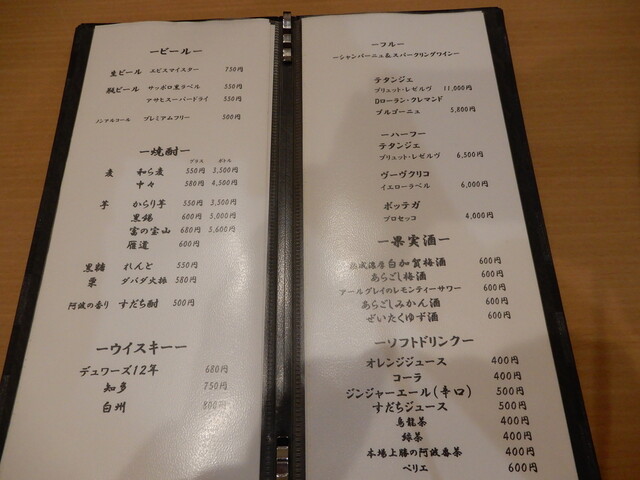 ービールー
生ビール エビスマイスター 750円
瓶ビール サッポロ黒ラベル 550円
アサヒスーパードライ 550円
ノンアルコール プレミアムフリー 500円
ー焼酎ー
グラス ボトル
麦 和ら麦 550円 3,500円
中々 580円 4,500円
芋 からり芋 550円 3,500円
黒錫 600円 5,000円
富の宝山 680円 5,600円
雁道 600円
黒糖 れんと 550円
栗 ダバダ火振 580円
阿波の香り すだち酎 500円
ーウイスキーー
デュワーズ12年 680円
知多 750円
白州 800円
ーフルー
ーシャンパーニュ&スパークリングワインー
テタンジェ
ブリュット・レゼルヴ 11,000円
ローラン・クレマンド
ブルゴーニュ 5,800円
ーハーフー
テタンジェ
ブリュット・レゼルヴ 6,500円
ヴーヴクリコ
イエローラベル 6,000円
ボッテガ
プロセッコ 4,000円
ー果実酒ー
熟成濃厚白加賀梅酒 600円
あらごし梅酒 600円
アールグレイのレモンティーサワー 600円
あらごしみかん酒 600円
ぜいたくゆず酒 600円
ーソフトドリンクー
オレンジジュース 400円
コーラ 400円
ジンジャーエール(辛口) 500円
すだちジュース 500円
烏龍茶 400円
緑茶 400円
本場上勝の阿波番茶 400円
ペリエ 600円